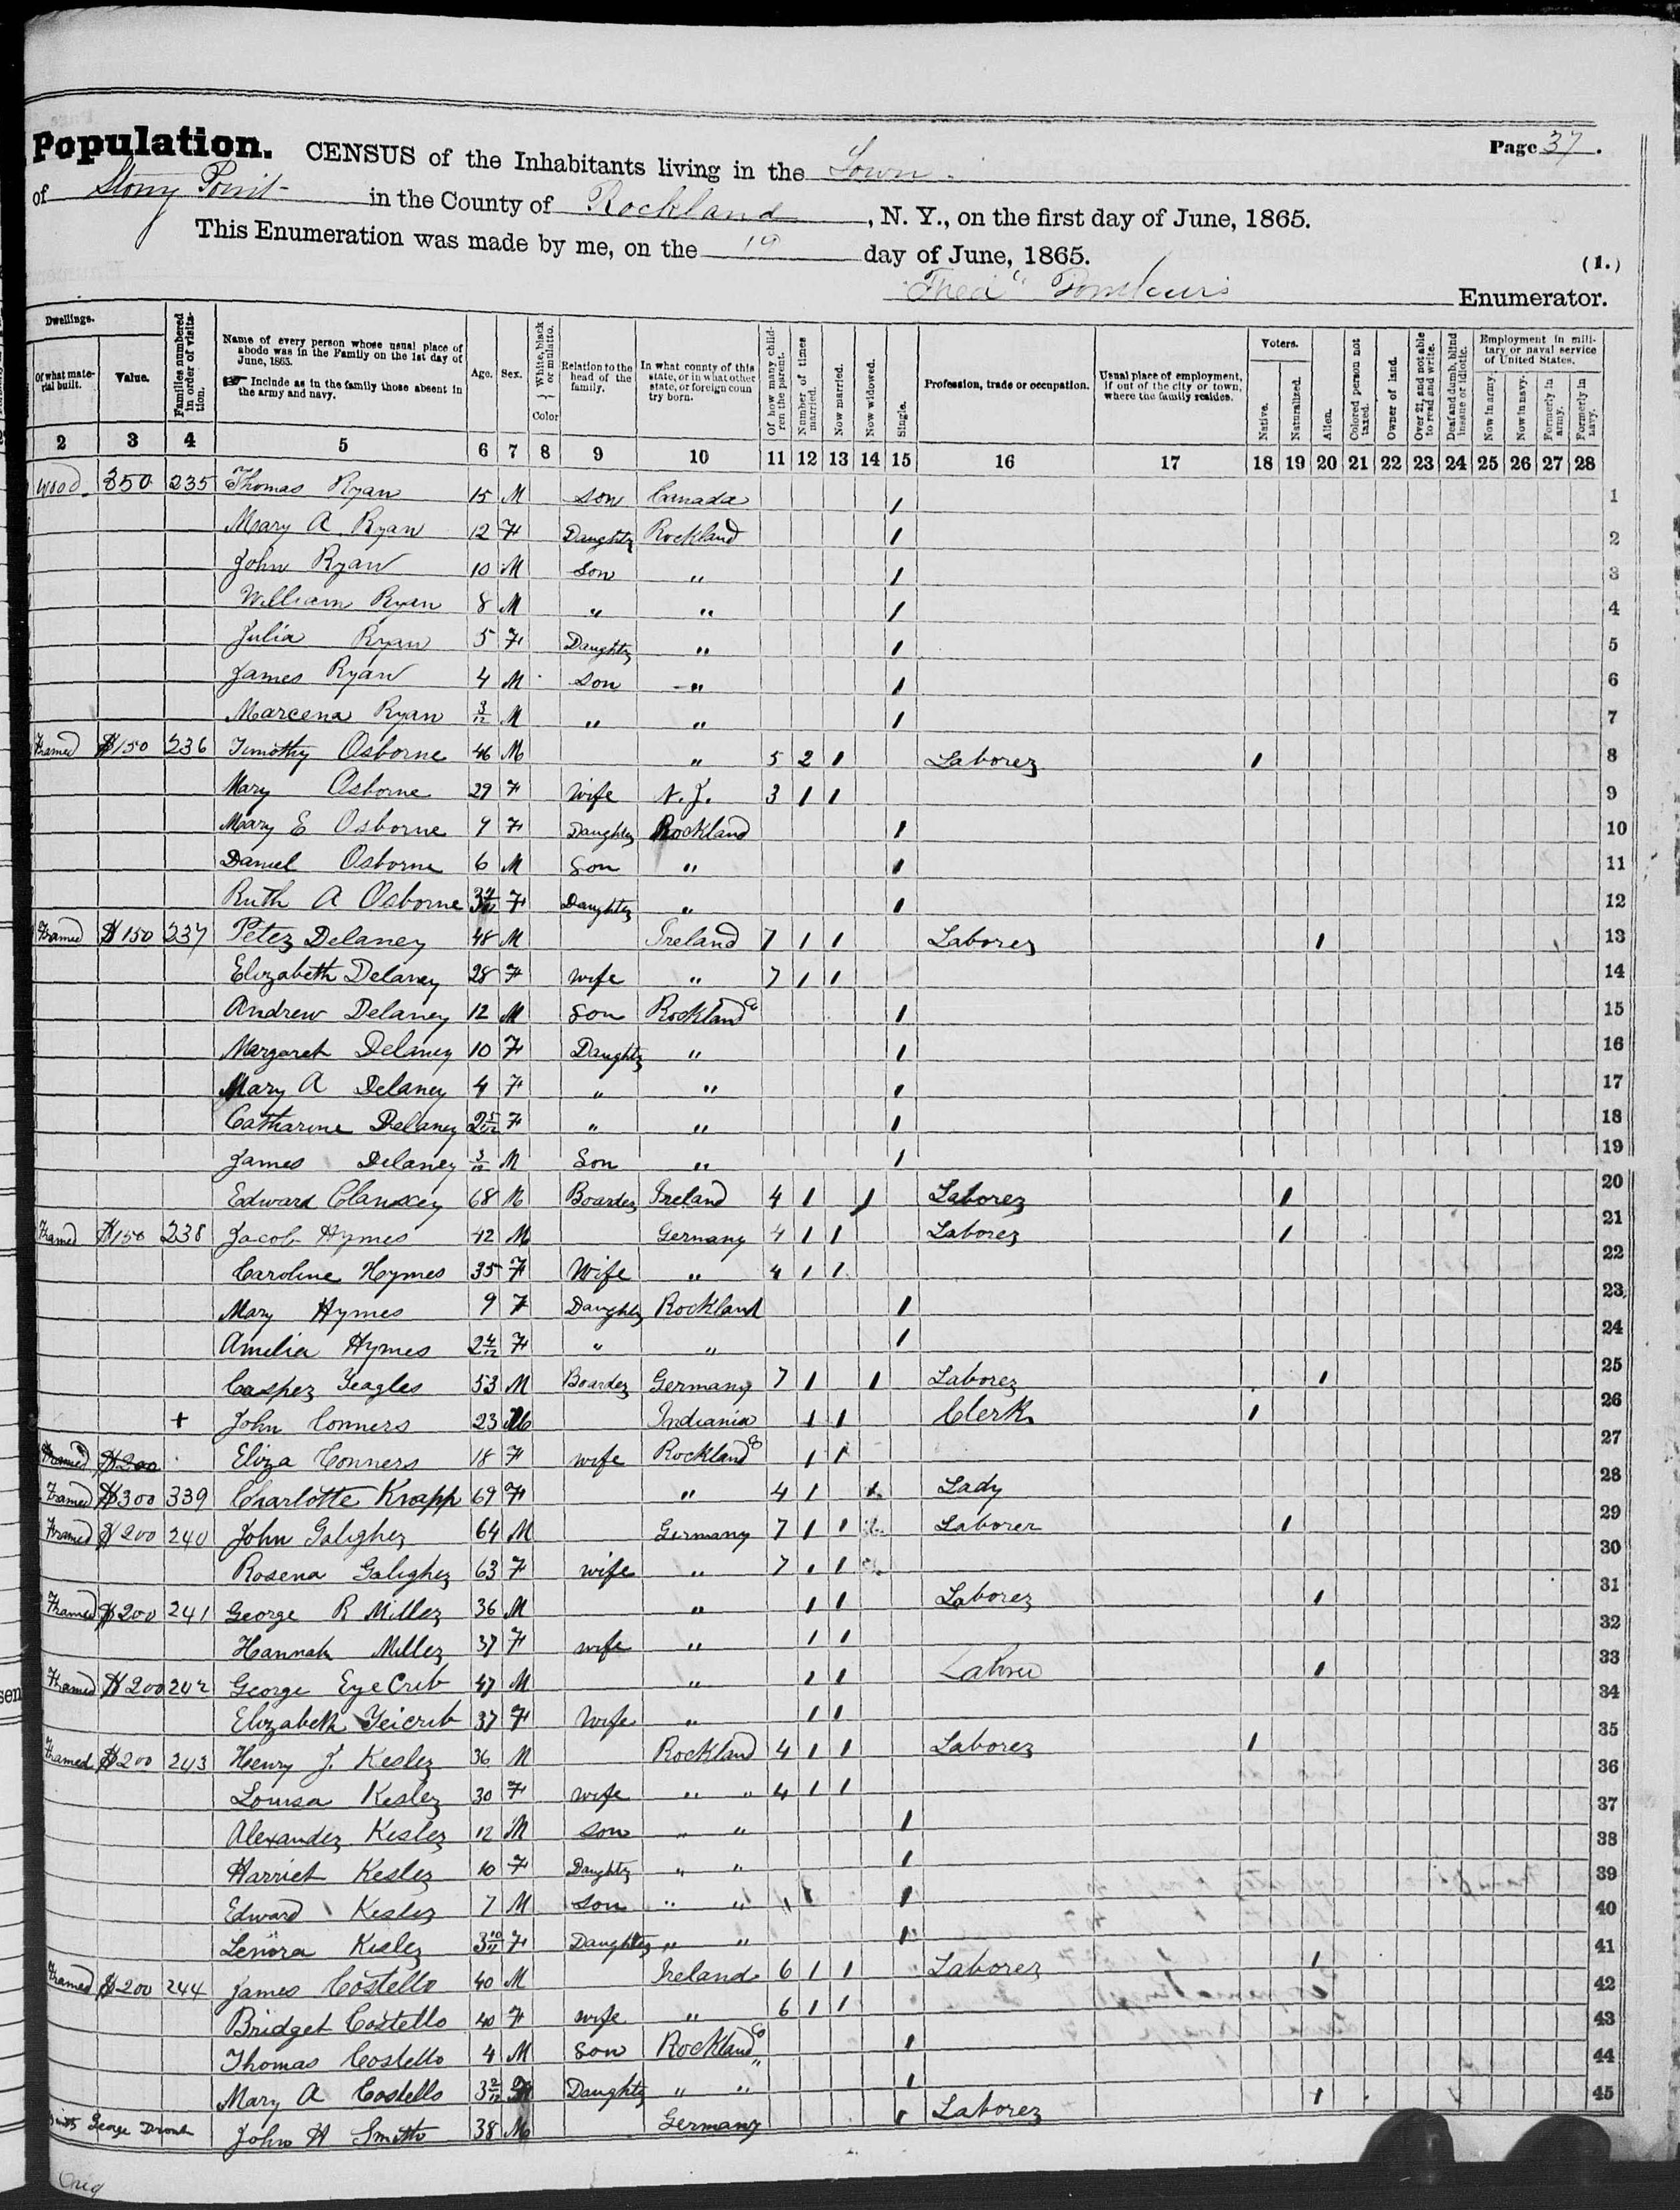 Population. CENSUS of the Inhabitants living in the Town Page 37.
of Stony Point in the County of Rockland, N. Y., on the first day of June, 1865.
This Enumeration was made by me, on the 19 day of June, 1865.
(1.)
Enumerator.
Dwellings. Of what material built. Value. Families numbered in order of visitation. Name of every person whose usual place of abode was in the Family on the 1st day of June, 1865. Include as in the family those absent in the army and navy. Age. Sex. White, black or mulatto. Color Relation to the head of the family. In what county of this state, or in what other state, or foreign coun try born. Of how many children the parent. Number of times married. Now married. Now widowed. Single. Profession, trade or occupation. Usual place of employment, if out of the city or town, where the family resides. Voters. Native. Naturalized. Alien. Colored person not taxed. Owner of land. Over 21, and not able to read and write. Deaf and dumb, blind insane or idiotic. Employment in military or naval service of United States. Now in army. Now in navy. Formerly in army. Formerly in navy.
2 3 4 5 6 7 8 9 10 11 12 13 14 15 16 17 18 19 20 21 22 23 24 25 26 27 28
Wood 850 235 Thomas Ryan 15 M Son Canada 1 1
Mary A Ryan 12 F Daughter Rockland 1 2
John Ryan 10 M Son " 1 3
William Ryan 8 M " " 1 4
Julia Ryan 5 F Daughter " 1 5
James Ryan 4 M Son " 1 6
Marcena Ryan 3/12 M " " 1 7
Framed $150 236 Timothy Osborne 46 M " 5 2 1 Laborer 1 8
Mary Osborne 29 F Wife N. J. 3 1 1 9
Mary E Osborne 9 F Daughter Rockland 1 10
Daniel Osborne 6 M Son " 1 11
Ruth A Osborne F Daughter " 1 12
Framed $150 237 Peter Delaney 48 M Ireland 7 1 1 Laborer 1 13
Elizabeth Delaney 28 F wife " 7 1 1 14
Andrew Delaney 12 M Son Rockland Co 1 15
Margaret Delaney 10 F Daughter " 1 16
Mary A Delaney 4 F " " 1 17
Catharine Delaney 2 5/12 F " " 1 18
James Delaney 3/12 M Son " 1 19
Edward Clanxcy 68 M Boarder Ireland 4 1 1 Laborer 1 20
Framed $150 238 Jacob Hymes 42 M Germany 4 1 1 Laborer 1 21
Caroline Hymes 35 F Wife " 4 1 1 22
Mary Hymes 9 F Daughter Rockland 1 23
Amelia Hymes 2 4/12 F " " 1 24
Casper Yeagles 53 M Boarder Germany 7 1 1 Laborer 1 25
+ John Conners 23 M Indiania 1 1 Clerk 1 26
Framed $200 Eliza Conners 18 F wife Rockland Co 1 1 27
Framed $300 339 Charlotte Knapp 69 F " 4 1 1 Lady 28
Framed $200 240 John Galigher 64 M Germany 7 1 1 Laborer 1 29
Rosena Galigher 63 F wife " 7 1 1 30
Framed $200 241 George R Miller 36 M " 1 1 Laborer 1 31
Hannah Miller 37 F wife " 1 1 32
Framed $200 242 George EyeCrib 47 M " 1 1 Laborer 1 33
Elizabeth Yeicrib 37 F Wife " 1 1 34
Framed $200 243 Henry J. Kesler 36 M Rockland 4 1 1 Laborer 1 35
Louisa Kesler 30 F wife " " 4 1 1 36
Alexander Kesler 12 M Son " " 1 37
Harriet Kesler 10 F Daughter " " 1 38
Edward Kesler 7 M Son " " 1 39
Lenora Kesler 3 10/12 F Daughter " " 1 40
Framed $200 244 James Costello 40 M Ireland 6 1 1 Laborer 1 41
Bridget Costello 40 F wife " 6 1 1 42
Thomas Costello 4 M Son Rockland Co 1 43
Mary A Costello 3 2/12 F Daughter " " 1 44
with George John H Smith 38 M Germany 1 Laborer 1 45